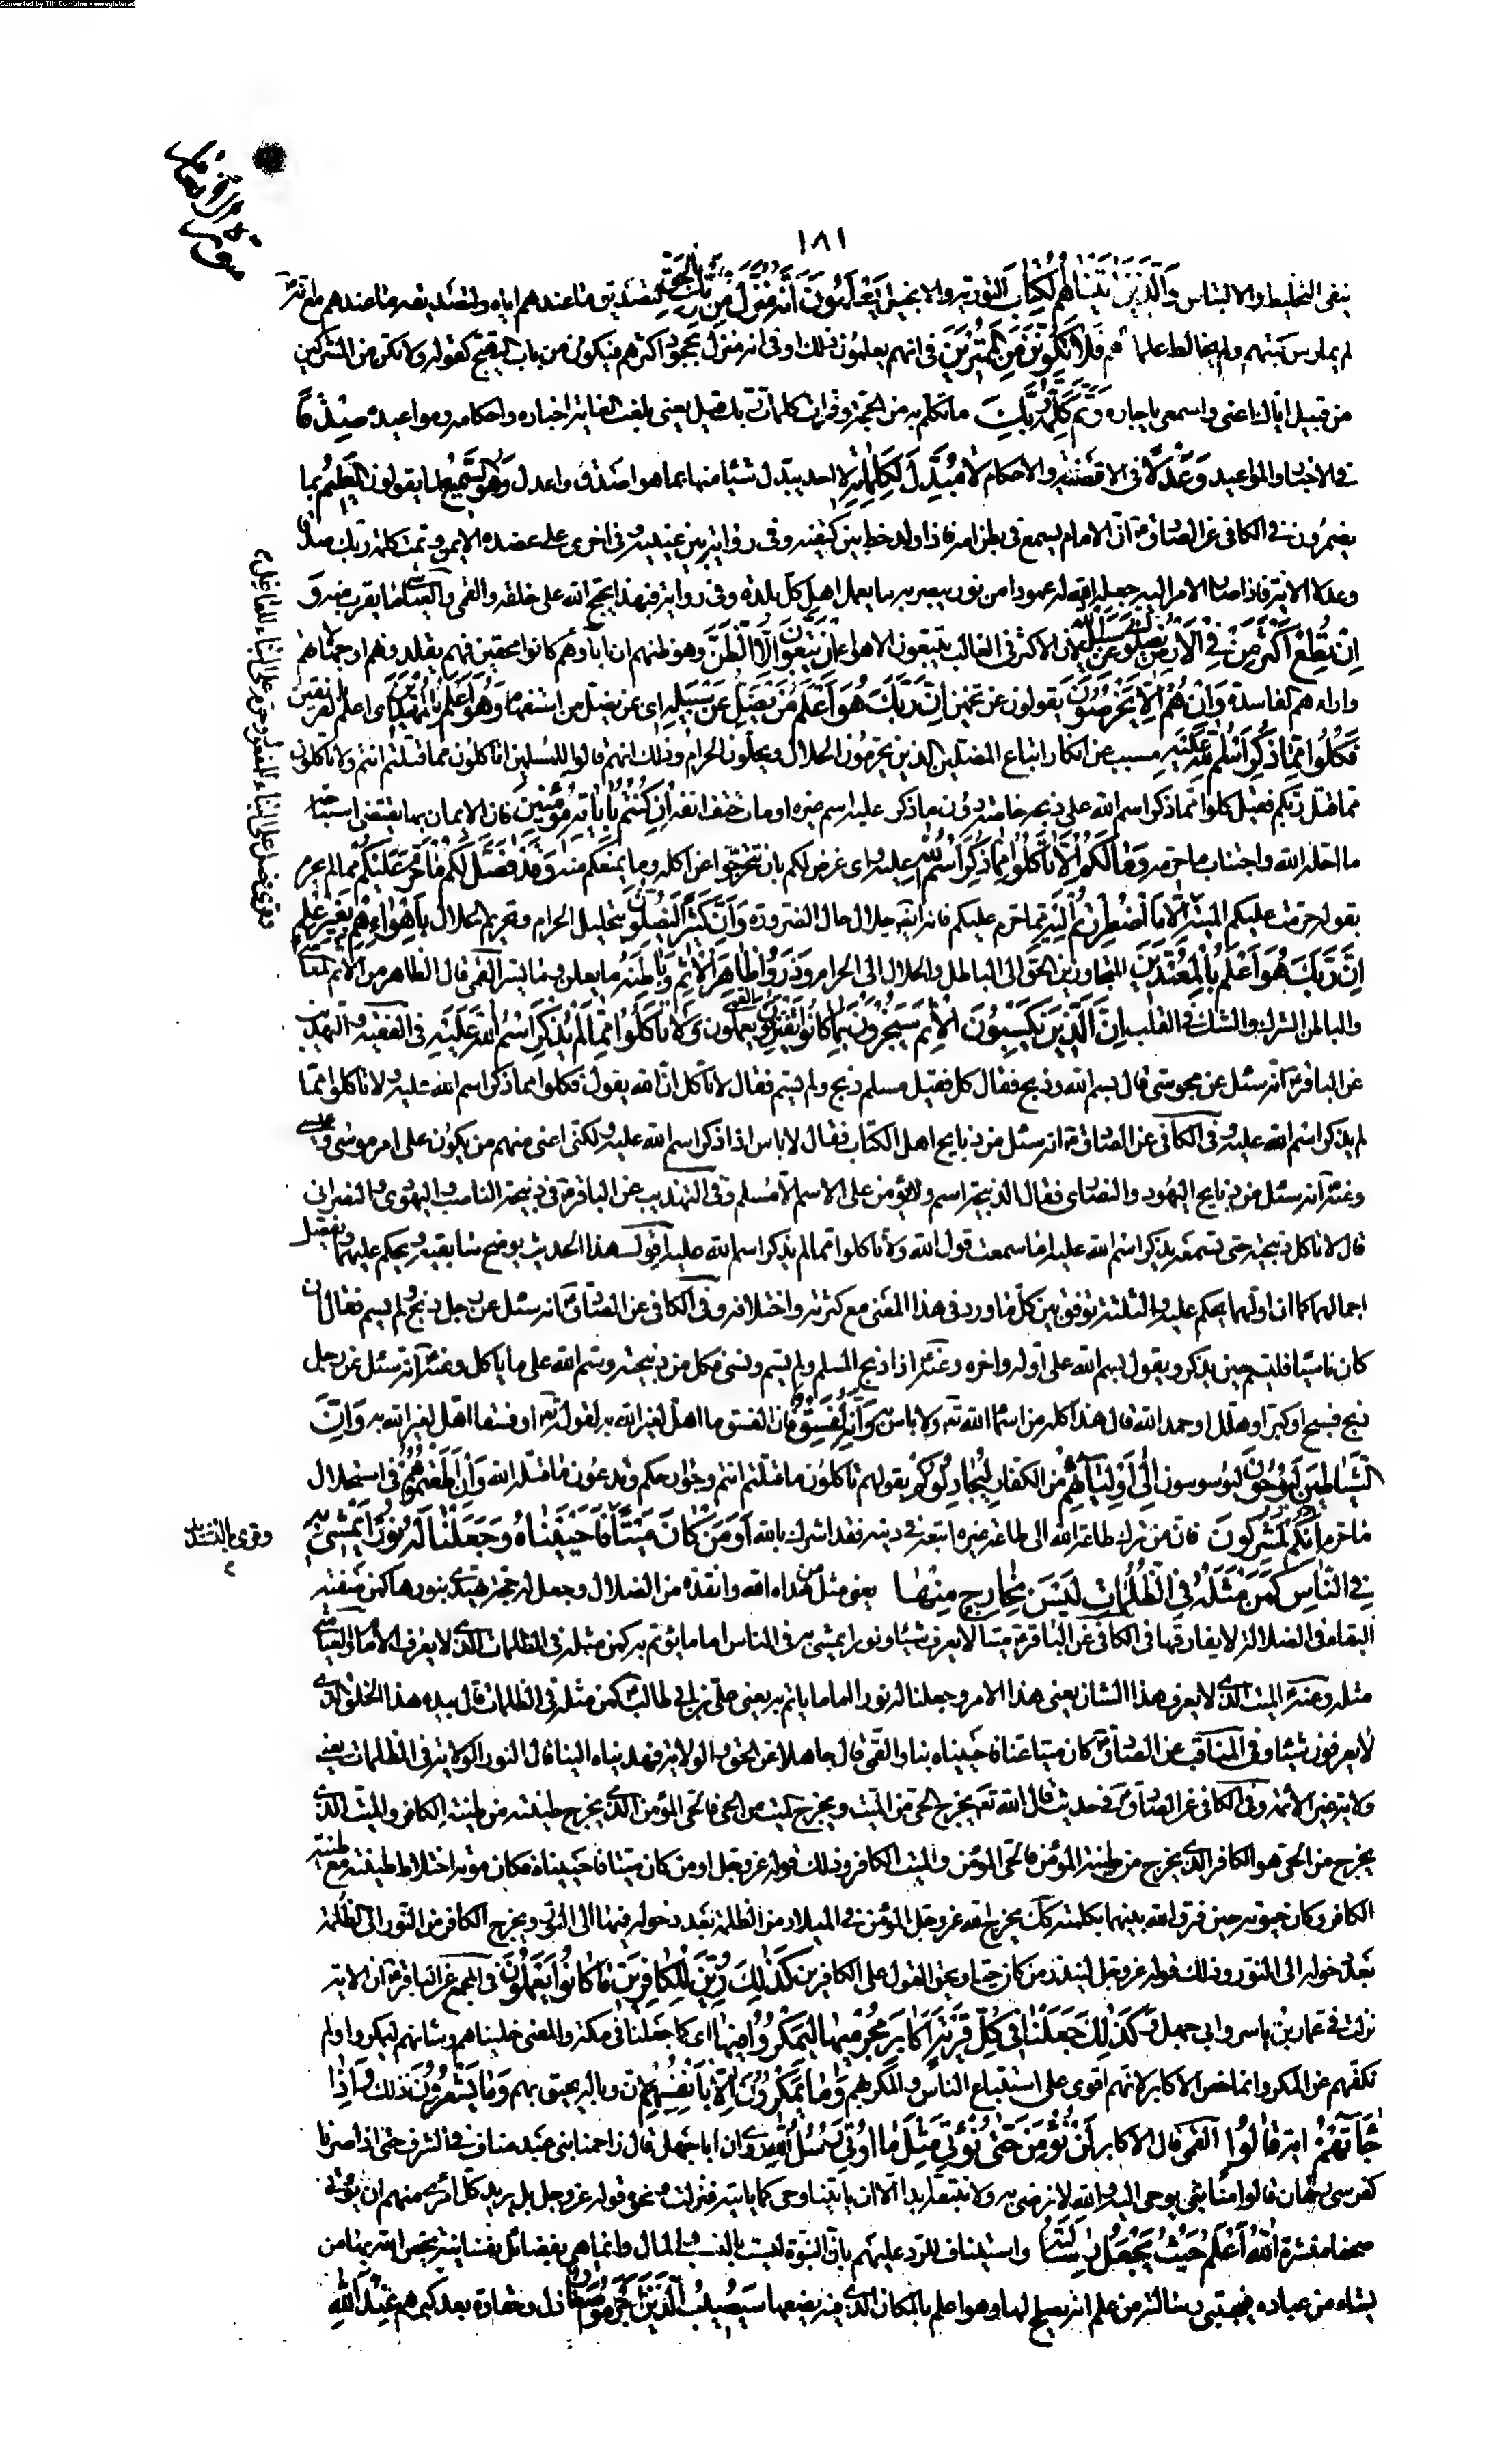 Converted by Tiff Combine - unregistered
١٨١
ينفي التخليط والالتباس وَالَّذِينَ آتَيْنَاهُمُ الْكِتَابَ التورية والانجيل يَعْلَمُونَ أَنَّهُ مُنَزَّلٌ مِنْ رَبِّكَ بِالْحَقِّ لتصديق ما عندهم اياه ولتصديقه ما عندهم مع انه
لم يمارس كتبهم ولم يخالط علماءهم فَلَا تَكُونَنَّ مِنَ الْمُمْتَرِينَ في انهم يعلمون ذلك او في انه منزل بجحود اكثرهم فيكون من باب التهييج كقوله ولا تكونن من المشركين
من قبيل اياك اعني واسمعي يا جاره وَتَمَّتْ كَلِمَةُ رَبِّكَ ما تكلم به من الحجة وقرئت كلمات ربك قيل يعني بلغت الغاية اخباره واحكامه ومواعيده صِدْقًا
في الاخبار والمواعيد وَعَدْلًا في الاقضية والاحكام لَا مُبَدِّلَ لِكَلِمَاتِهِ لا احد يبدل شيئا منها بما هو اصدق واعدل وَهُوَ السَّمِيعُ لما يقولون الْعَلِيمُ بما
يضمرون في الكافي عن الصادق ان الامام يسمع في بطن امه فاذا ولد خط بين كتفيه وفي رواية بين عينيه وفي اخرى على عضده الايمن وتمت كلمة ربك صدقا
وعدلا الاية فاذا صار الامر اليه جعل الله له عمودا من نور يبصر به ما يعمل اهل كل بلدة وفي رواية فبهذا يحتج الله على خلقه والقمي والعياشي ما يقرب منه وَ
إِنْ تُطِعْ أَكْثَرَ مَنْ فِي الْأَرْضِ يُضِلُّوكَ عَنْ سَبِيلِ اللَّهِ لان الاكثر في الغالب يتبعون الاهواء إِنْ يَتَّبِعُونَ إِلَّا الظَّنَّ وهو ظنهم ان اباءهم كانوا محقين فهم يقلدونهم او جهالاتهم
واراءهم الفاسدة وَإِنْ هُمْ إِلَّا يَخْرُصُونَ يقولون عن تخمين إِنَّ رَبَّكَ هُوَ أَعْلَمُ مَنْ يَضِلُّ عَنْ سَبِيلِهِ اي عن يضل من استفهامية وَهُوَ أَعْلَمُ بِالْمُهْتَدِينَ اي اعلم بالفريقين
فَكُلُوا مِمَّا ذُكِرَ اسْمُ اللَّهِ عَلَيْهِ مسبب عن انكار اتباع المضلين الذين يحرمون الحلال ويحلون الحرام وذلك انهم قالوا للمسلمين اتاكلون مما قتلتم انتم ولا تاكلون
مما قتل ربكم فقيل كلوا مما ذكر اسم الله على ذبحه خاصة دون ما ذكر عليه اسم غيره او مات حتف انفه إِنْ كُنْتُمْ بِآيَاتِهِ مُؤْمِنِينَ فان الايمان بها يقتضي استباحة
ما احله الله واجتناب ما حرمه وَمَا لَكُمْ أَلَّا تَأْكُلُوا مِمَّا ذُكِرَ اسْمُ اللَّهِ عَلَيْهِ واي غرض لكم بان تتحرجوا عن اكله وما يمنعكم منه وَقَدْ فَصَّلَ لَكُمْ مَا حَرَّمَ عَلَيْكُمْ مما لم يحرم
بقوله حرمت عليكم الميتة إِلَّا مَا اضْطُرِرْتُمْ إِلَيْهِ مما حرم عليكم فانه ايضا حلال حال الضرورة وَإِنَّ كَثِيرًا لَيُضِلُّونَ بتحليل الحرام وتحريم الحلال بِأَهْوَائِهِمْ بِغَيْرِ عِلْمٍ
إِنَّ رَبَّكَ هُوَ أَعْلَمُ بِالْمُعْتَدِينَ المتجاوزين الحق الى الباطل والحلال الى الحرام وَذَرُوا ظَاهِرَ الْإِثْمِ وَبَاطِنَهُ ما يعلن وما يسر القمي قال الظاهر من الاثم المعاصي
والباطن الشرك والشك في القلب إِنَّ الَّذِينَ يَكْسِبُونَ الْإِثْمَ سَيُجْزَوْنَ بِمَا كَانُوا يَقْتَرِفُونَ القمي يعملون وَلَا تَأْكُلُوا مِمَّا لَمْ يُذْكَرِ اسْمُ اللَّهِ عَلَيْهِ في الفقيه والتهذيب
عن الباقر انه سئل عن مجوسي قال بسم الله وذبح فقال كل فقيل مسلم ذبح ولم يسم فقال لا تاكل ان الله يقول فكلوا مما ذكر اسم الله عليه ولا تاكلوا مما
لم يذكر اسم الله عليه وفي الكافي عن الصادق انه سئل من ذبايح اهل الكتاب فقال لا باس اذا ذكر اسم الله عليه ولكني اعني منهم من يكون على امر موسى وعيسى
وعنه انه سئل من ذبايح اليهود والنصارى فقال الذبيحة اسم ولا يؤمن على الاسم الا مسلم وفي التهذيب عن الباقر في ذبيحة الناصب واليهودي والنصراني
قال لا تاكل ذبيحته حتى تسمعه يذكر اسم الله عليه اما سمعت قول الله ولا تاكلوا مما لم يذكر اسم الله عليه اقول هذا الحديث يوضح سابقيه ويحكم عليهما ويفصل
اجمالهما كما ان اولهما يحكم عليه والثلثة توفق بين كل ما ورد في هذا المعنى مع كثرته واختلافه وفي الكافي عن الصادق انه سئل عن رجل ذبح ولم يسم فقال ان
كان ناسيا فليسم حين يذكر ويقول بسم الله على اوله واخره وعنه اذا ذبح المسلم ولم يسم ونسي فكل من ذبيحته وسم الله على ما ياكل وعنه انه سئل عن رجل
ذبح فسبح او كبر او هلل او حمد الله قال هذا كله من اسماء الله تعالى ولا باس به وَإِنَّهُ لَفِسْقٌ فان الفسق ما اهل لغير الله به لقوله او فسقا اهل لغير الله به وَإِنَّ
الشَّيَاطِينَ لَيُوحُونَ ليوسوسون إِلَى أَوْلِيَائِهِمْ من الكفار لِيُجَادِلُوكُمْ بقولهم تاكلون ما قتلتم انتم وجوارحكم وتدعون ما قتله الله وَإِنْ أَطَعْتُمُوهُمْ في استحلال
ما حرم إِنَّكُمْ لَمُشْرِكُونَ فان من ترك طاعة الله الى طاعة غيره اتبعه في دينه فقد اشرك بالله أَوَمَنْ كَانَ مَيْتًا فَأَحْيَيْنَاهُ وَجَعَلْنَا لَهُ نُورًا يَمْشِي بِهِ
فِي النَّاسِ كَمَنْ مَثَلُهُ فِي الظُّلُمَاتِ لَيْسَ بِخَارِجٍ مِنْهَا يعني مثل من هداه الله وانقذه من الضلال وجعل له حجة يهتدي بنورها كمن صفته
البقاء في الضلالة لا يفارقها في الكافي عن الباقر ميتا لا يعرف شيئا ونورا يمشي به في الناس اماما يؤتم به كمن مثله في الظلمات الذي لا يعرف الامام والعياشي
مثله وعنه الميت الذي لا يعرف هذا الشان يعني هذا الامر وجعلنا له نورا اماما ياتم به يعني علي بن ابي طالب كمن مثله في الظلمات قال بيده هذا الخلق الذي
لا يعرفون شيئا وفي المناقب عن الصادق كان ميتا عنا فاحييناه بنا والقمي قال جاهلا عن الحق والولاية فهديناه الينا قال النور الولاية في الظلمات يعني
ولاية غير الائمة وفي الكافي عن الصادق في حديث قال الله تعالى يخرج الحي من الميت ويخرج الميت من الحي فالحي المؤمن الذي يخرج طينته من طينة الكافر والميت الذي
يخرج من الحي هو الكافر الذي يخرج من طينة المؤمن فالحي المؤمن والميت الكافر وذلك قوله عز وجل اومن كان ميتا فاحييناه فكان موته اختلاط طينته مع طينة
الكافر وكان حيوته حين فرق الله بينهما بكلمته كذلك يخرج الله عز وجل المؤمن في الميلاد من الظلمة بعد دخوله فيها الى النور ويخرج الكافر من النور الى الظلمة
بعد دخوله الى النور وذلك قوله عز وجل لينذر من كان حيا ويحق القول على الكافرين كَذَلِكَ زُيِّنَ لِلْكَافِرِينَ مَا كَانُوا يَعْمَلُونَ في المجمع عن الباقر ان الاية
نزلت في عمار بن ياسر وابي جهل وَكَذَلِكَ جَعَلْنَا فِي كُلِّ قَرْيَةٍ أَكَابِرَ مُجْرِمِيهَا لِيَمْكُرُوا فِيهَا اي كما جعلنا في مكة والمعنى خليناهم وشانهم ليمكروا ولم
نكفهم عن المكر وانما خص الاكابر لانهم اقوى على استتباع الناس والمكر بهم وَمَا يَمْكُرُونَ إِلَّا بِأَنْفُسِهِمْ لان وباله يحيق بهم وَمَا يَشْعُرُونَ ذلك وَإِذَا
جَاءَتْهُمْ اية قَالُوا القمي قال الاكابر لَنْ نُؤْمِنَ حَتَّى نُؤْتَى مِثْلَ مَا أُوتِيَ رُسُلُ اللَّهِ روي ان ابا جهل قال زاحمنا بني عبد مناف في الشرف حتى اذا صرنا
كفرسي رهان قالوا منا نبي يوحى اليه والله لا نرضى به ولا نتبعه ابدا الا ان ياتينا وحي كما ياتيه فنزلت ونحوه قوله عز وجل بل يريد كل امرئ منهم ان يؤتى
صحفا منشرة اللَّهُ أَعْلَمُ حَيْثُ يَجْعَلُ رِسَالَتَهُ استيناف للرد عليهم بان النبوة ليست بالنسب والمال وانما هي بفضائل نفسانية يخص الله بها من
يشاء من عباده فيجتبي رسالته من علم انه يصلح لها وهو اعلم بالمكان الذي فيه يضعها سَيُصِيبُ الَّذِينَ أَجْرَمُوا صَغَارٌ ذل وحقارة بعد كبرهم عِنْدَ اللَّهِ
وقرئ فصل على البناء للمفعول وحرم على البناء للفاعل
وقرئ بالتشديد